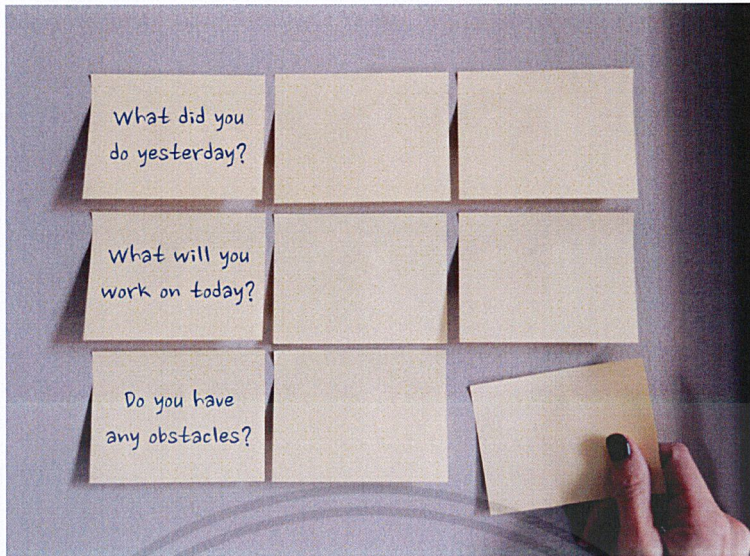 What did you
do yesterday?
What will you
work on today?
Do you have
any obstacles?